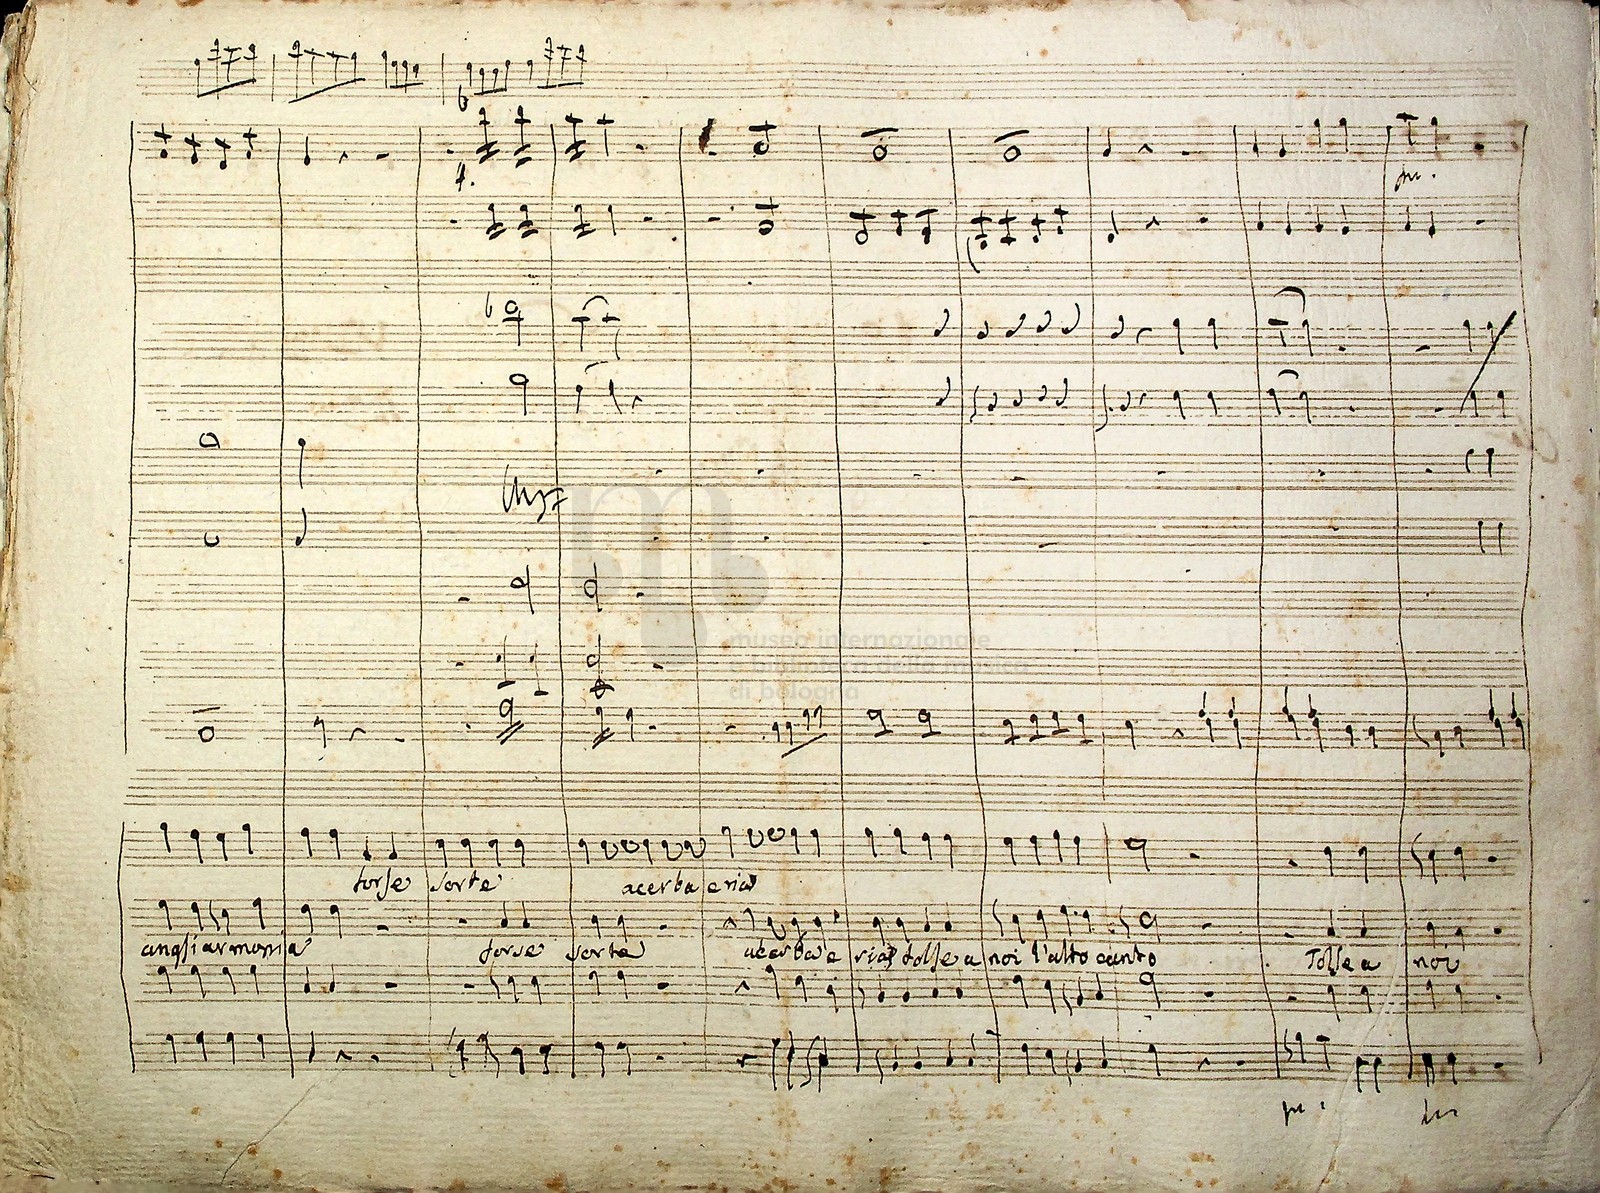 f.
museo internazionale
e biblioteca della musica
di bologna
forse sorte acerba e ria
angli armonia forse sorte acerba e ria tolse a noi l'alto canto Tolse a noi